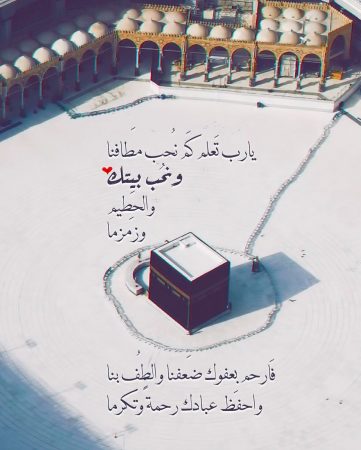 يارب تَعلم كَم نُحب مطَافنا
ونحُب بيتك
والحطِيم
وزمزما
فَارحم بعفوك ضِعفنا والطُف بنا
واحفَظ عبادك رحمة وتكرما